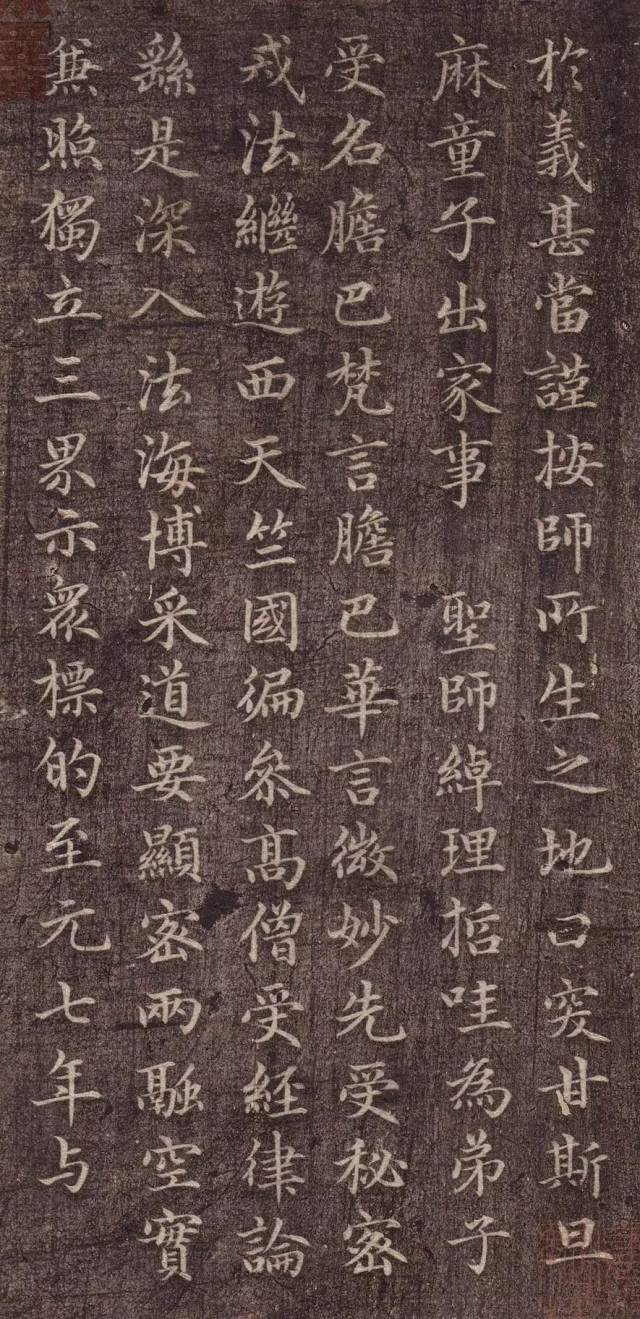 於義甚當謹按師所生之地曰突甘斯旦
麻童子出家事 聖師綽理哲哇為弟子
受名膽巴梵言膽巴華言微妙先受秘密
戒法繼遊西天竺國徧叅高僧受經律論
繇是深入法海博采道要顯密兩融空實
無照獨立三界示眾標的至元七年与